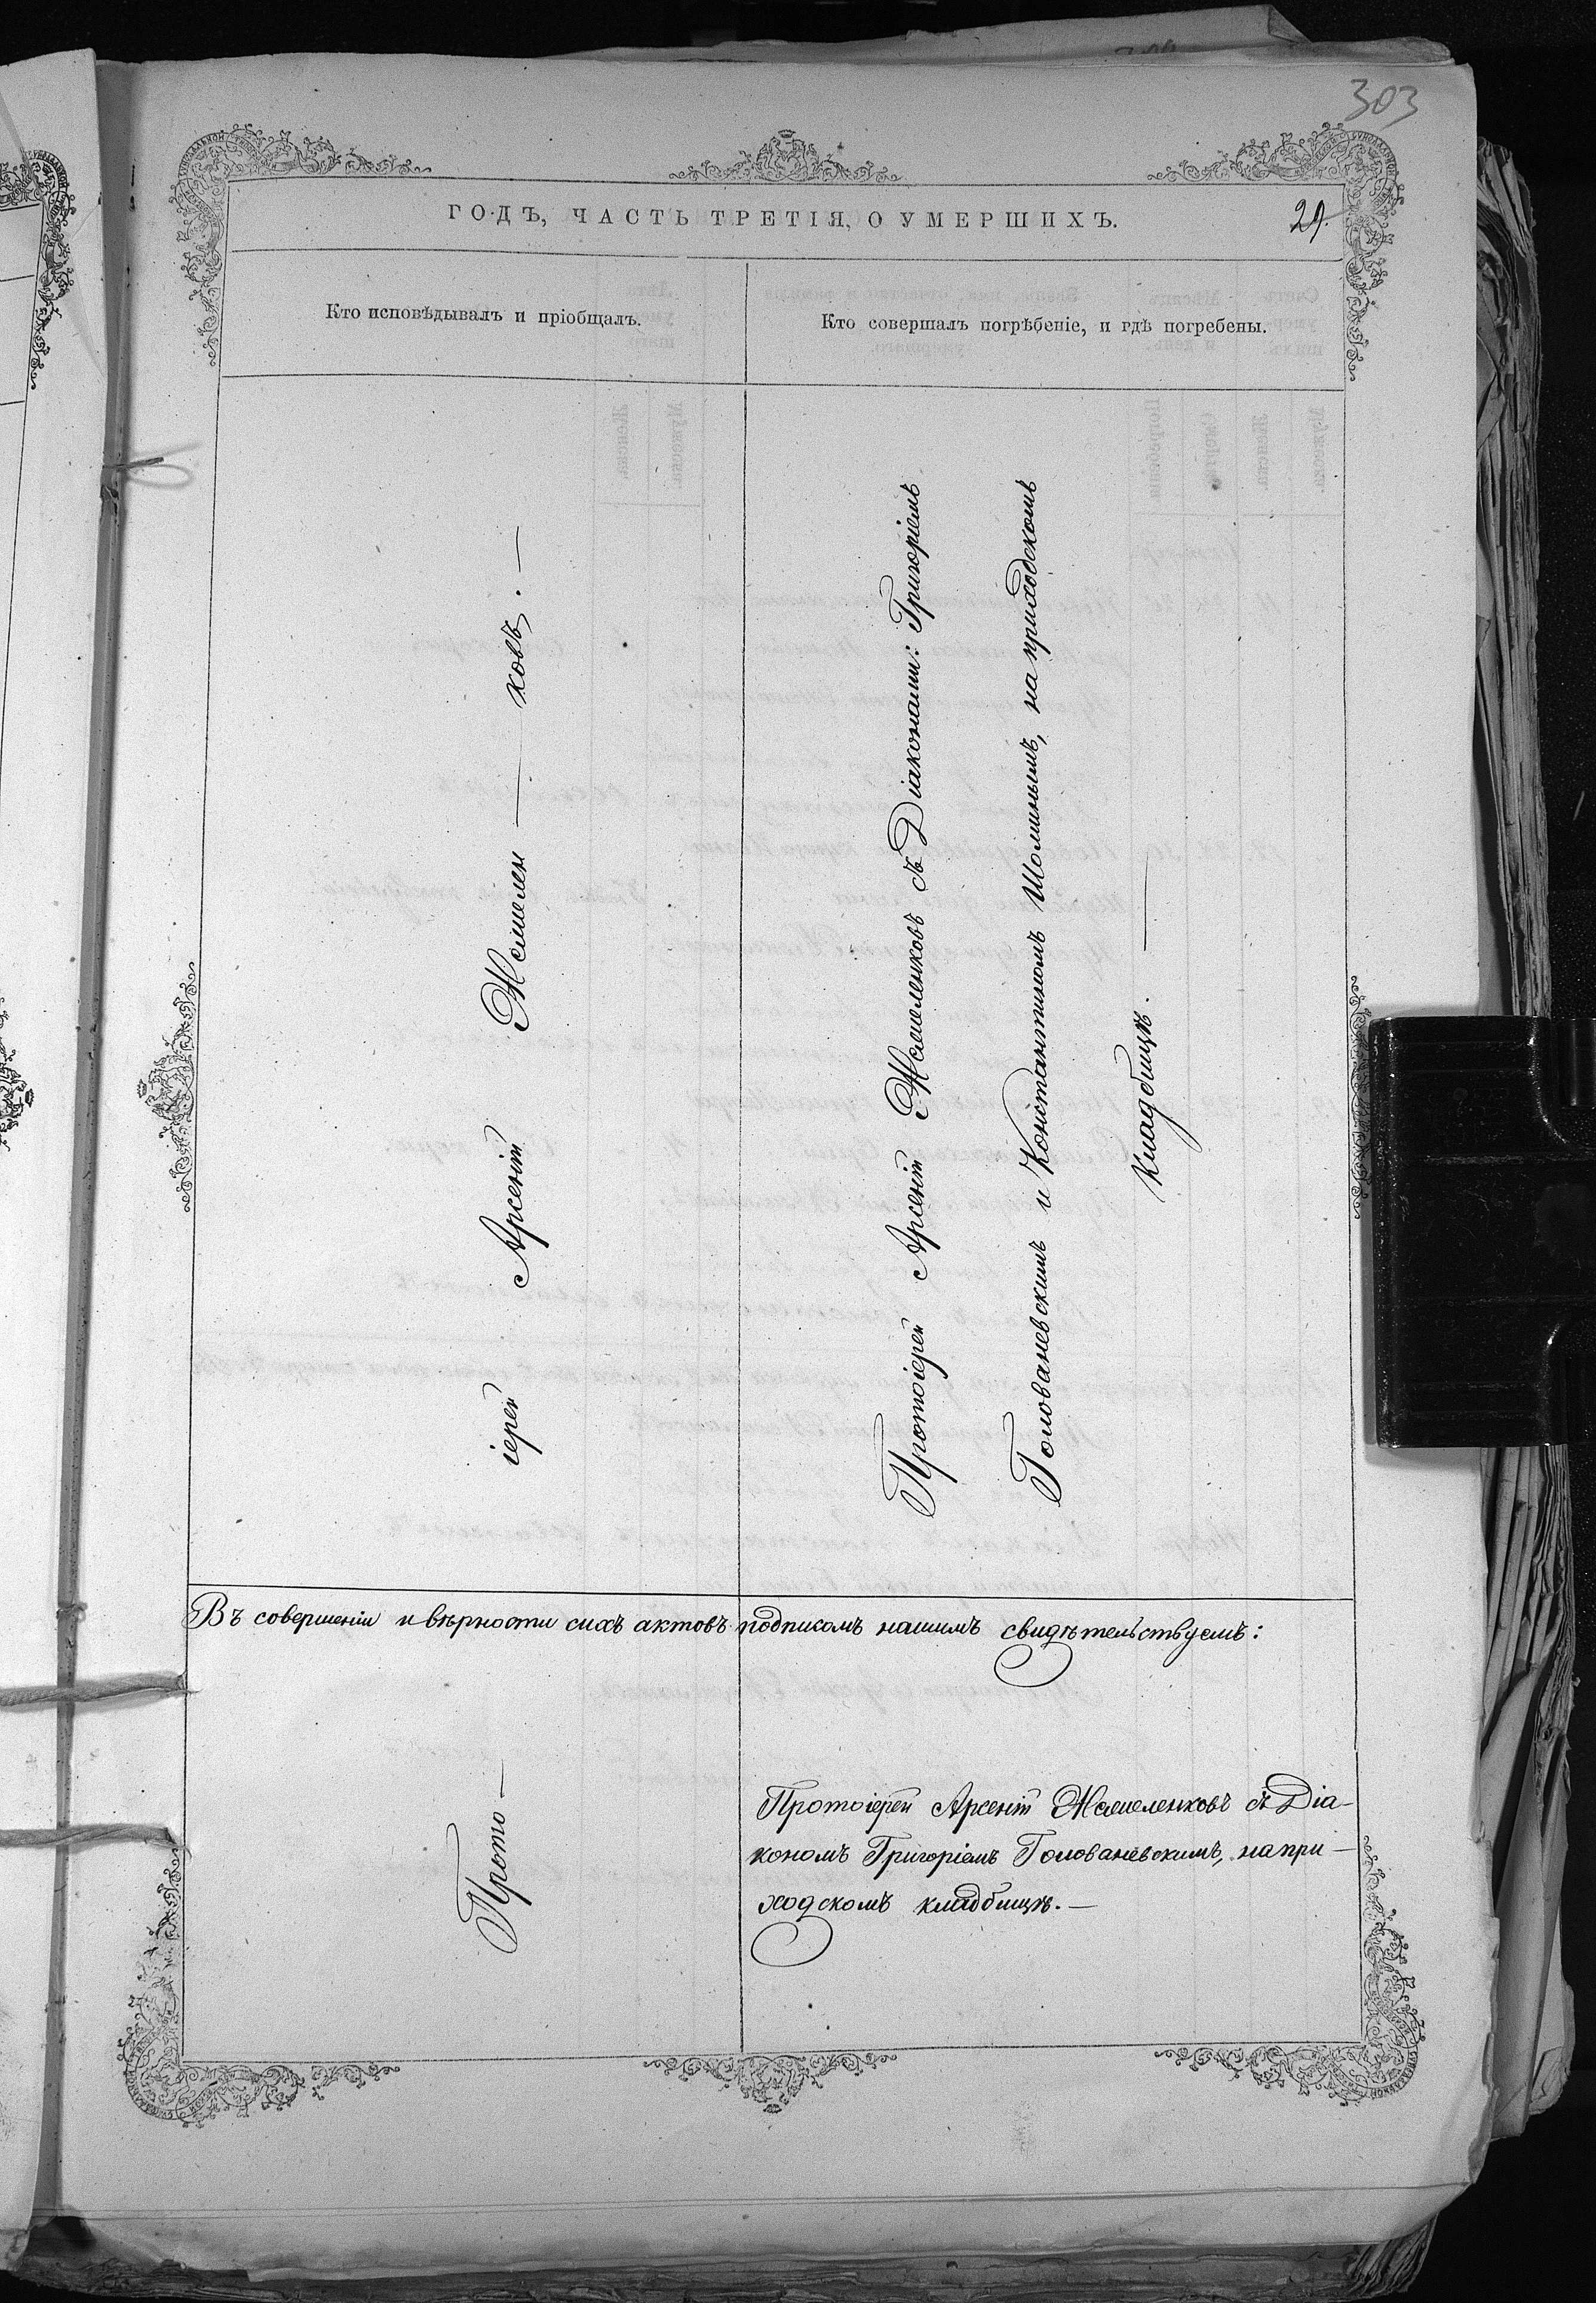 303
ГОДЪ, ЧАСТЬ ТРЕТІЯ, О УМЕРШИХЪ.
29.
Кто исповѣдывалъ и пріобщалъ.
Кто совершалъ погрѣбеніе, и гдѣ погребены.
іерей Арсеній Жемелен — ковъ. —
Протоіерей Арсеній Жемеленковъ съ Діаконами: Григоріемъ
Голованевскимъ и Константиномъ Шоминымъ, на приходскомъ
Кладбищѣ. —
Въ совершеніи и вѣрности сихъ актовъ подписомъ нашимъ свидѣтельствуемъ:
Прото —
Протоіерей Арсеній Жемеленковъ съ Діа-
кономъ Григоріемъ Голованевскимъ, на при-
ходскомъ кладбищѣ. —